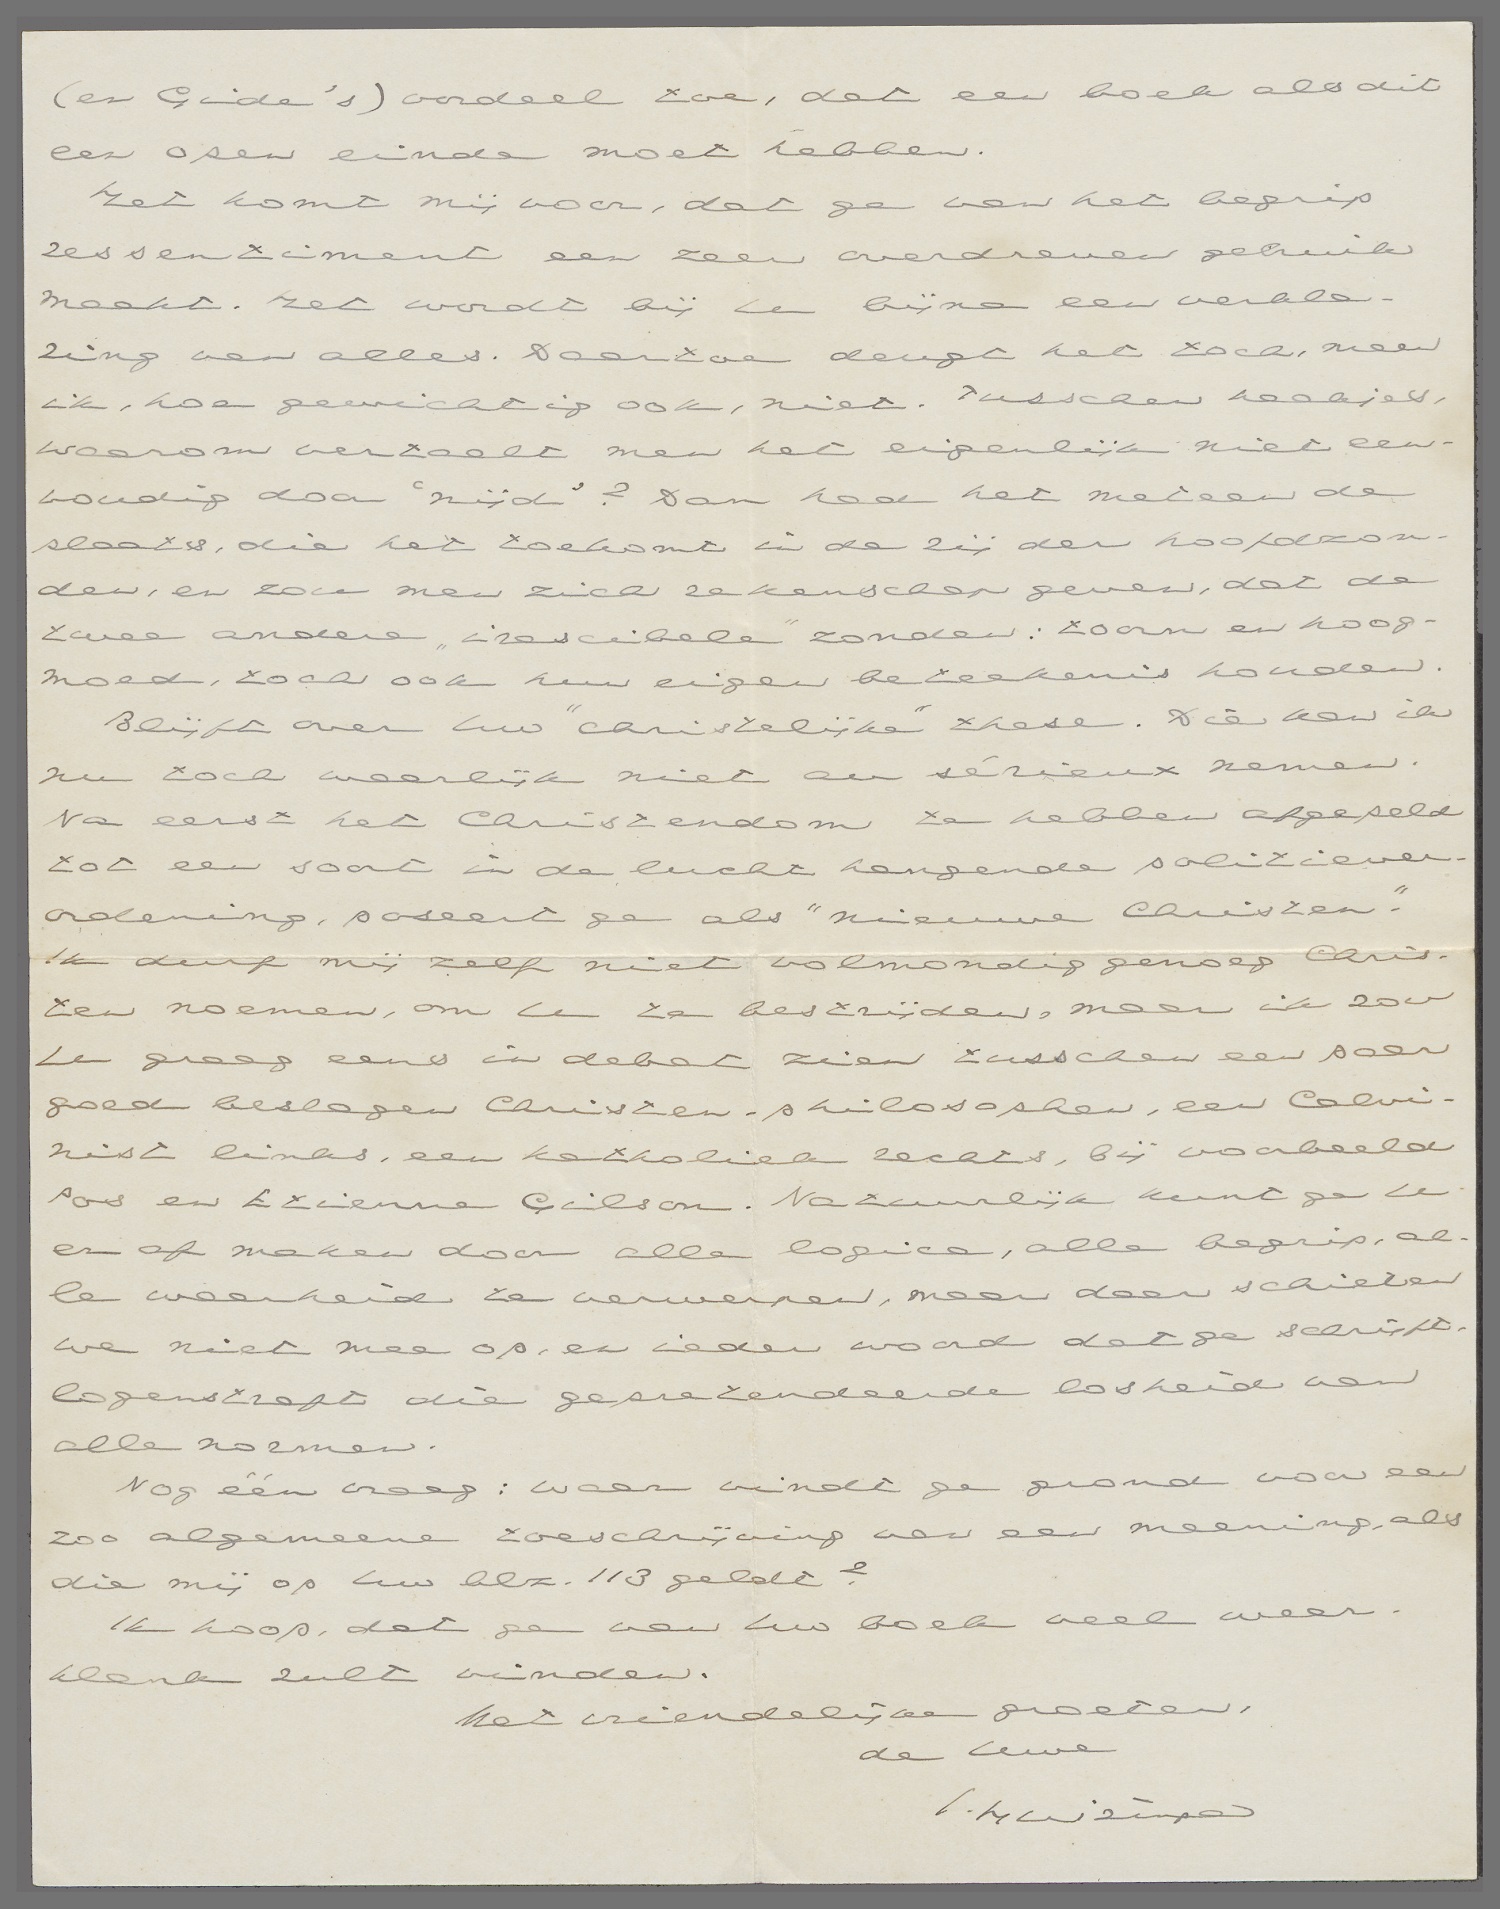 (en Gide's) oordeel toe, dat een boek als dit
een open einde moet hebben.
Het komt mij voor, dat ge van het begrip
ressentiment een zeer overdreven gebruik
maakt. Het wordt bij U bijna een verkla-
ring van alles. Daartoe deugt het toch, meen
ik, hoe gewichtig ook, niet. Tusschen haakjes,
waarom vertaalt men het eigenlijk niet een-
voudig door 'nijd'? Dan had het meteen de
plaats, die het toekomt in de rij der hoofdzon-
den, en zou men zich rekenschap geven, dat de
twee andere „irascibele" zonden: toorn en hoog-
moed, toch ook hun eigen beteekenis houden.
Blijft over Uw "christelijke" these. Die kan ik
nu toch waarlijk niet au sérieux nemen.
Na eerst het Christendom te hebben afgepeld
tot een soort in de lucht hangende politiever-
ordening, poseert ge als "nieuwe Christen".
Ik durf mij zelf niet volmondig genoeg Chris-
ten noemen, om U te bestrijden, maar ik zou
U graag eens in debat zien tusschen een paar
goed beslagen Christen-philosophen, een Calvi-
nist links, een katholiek rechts, bij voorbeeld
Pos en Etienne Gilson. Natuurlijk kunt ge U
er af maken door alle logica, alle begrip, al-
le waarheid te verwerpen, maar daar schieten
we niet mee op, en ieder woord dat ge schrijft,
logenstraft die gepretendeerde losheid van
alle normen.
Nog één vraag: waar vindt ge grond voor een
zoo algemeene toeschrijving van een meening, als
die mij op Uw blz. 113 geldt?
Ik hoop, dat ge van Uw boek veel weer-
klank zult vinden.
Met vriendelijke groeten,
de Uwe
J. Huizinga